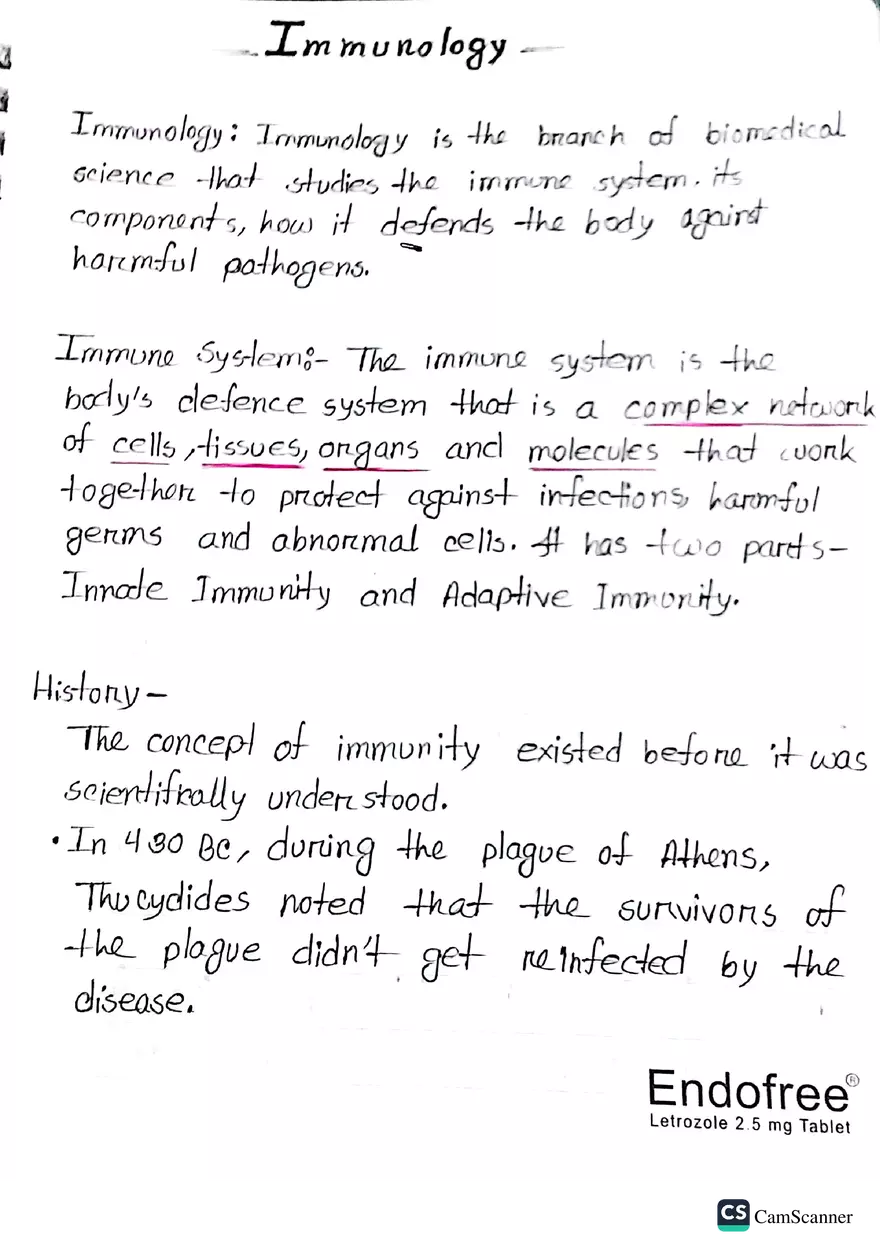 Immunology
Immunology: Immunology is the branch of biomedical
science that studies the immune system. its
components, how it defends the body against
harmful pathogens.
Immune System:- The immune system is the
body's defence system that is a complex network
of cells, tissues, organs and molecules that work
together to protect against infections, harmful
germs and abnormal cells. It has two parts-
Innate Immunity and Adaptive Immunity.
History-
The concept of immunity existed before it was
scientifically understood.
• In 430 BC, during the plague of Athens,
Thucydides noted that the survivors of
the plague didn't get reinfected by the
disease.
Endofree®
Letrozole 2.5 mg Tablet
CS CamScanner